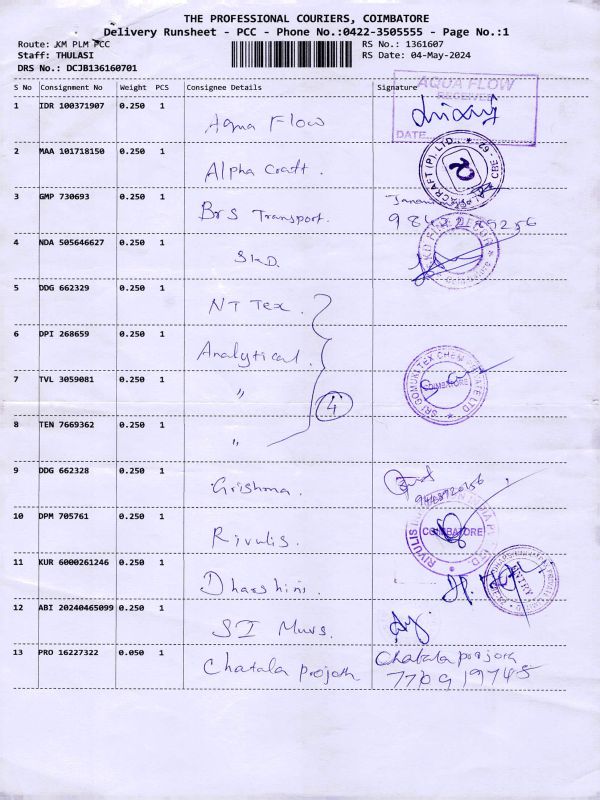 THE PROFESSIONAL COURIERS, COIMBATORE
Delivery Runsheet - PCC - Phone No.:0422-3505555 - Page No.:1
Route: JKM PLM PCC
Staff: THULASI
DRS No.: DCJB136160701
RS No.: 1361607
RS Date: 04-May-2024
S No Consignment No Weight PCS Consignee Details Signature
AQUA FLOW
RECEIVED
DATE
1 IDR 100371907 0.250 1 Aqua Flow
2 MAA 101718150 0.250 1 Alpha Craft.
3 GMP 730693 0.250 1 BrS Transport.
4 NDA 505646627 0.250 1 SKD.
5 DDG 662329 0.250 1 NT Tex.
6 DPI 268659 0.250 1 Analytical.
7 TVL 3059081 0.250 1 "
4
SRI GOMUKI TEX CHEM PRIVATE LTD
COIMBATORE
8 TEN 7669362 0.250 1 "
9 DDG 662328 0.250 1 Grishma.
10 DPM 705761 0.250 1 Rivulis.
COIMBATORE
11 KUR 6000261246 0.250 1 Dharshini.
12 ABI 20240465099 0.250 1
13 PRO 16227322 0.050 1 Chatala projoth